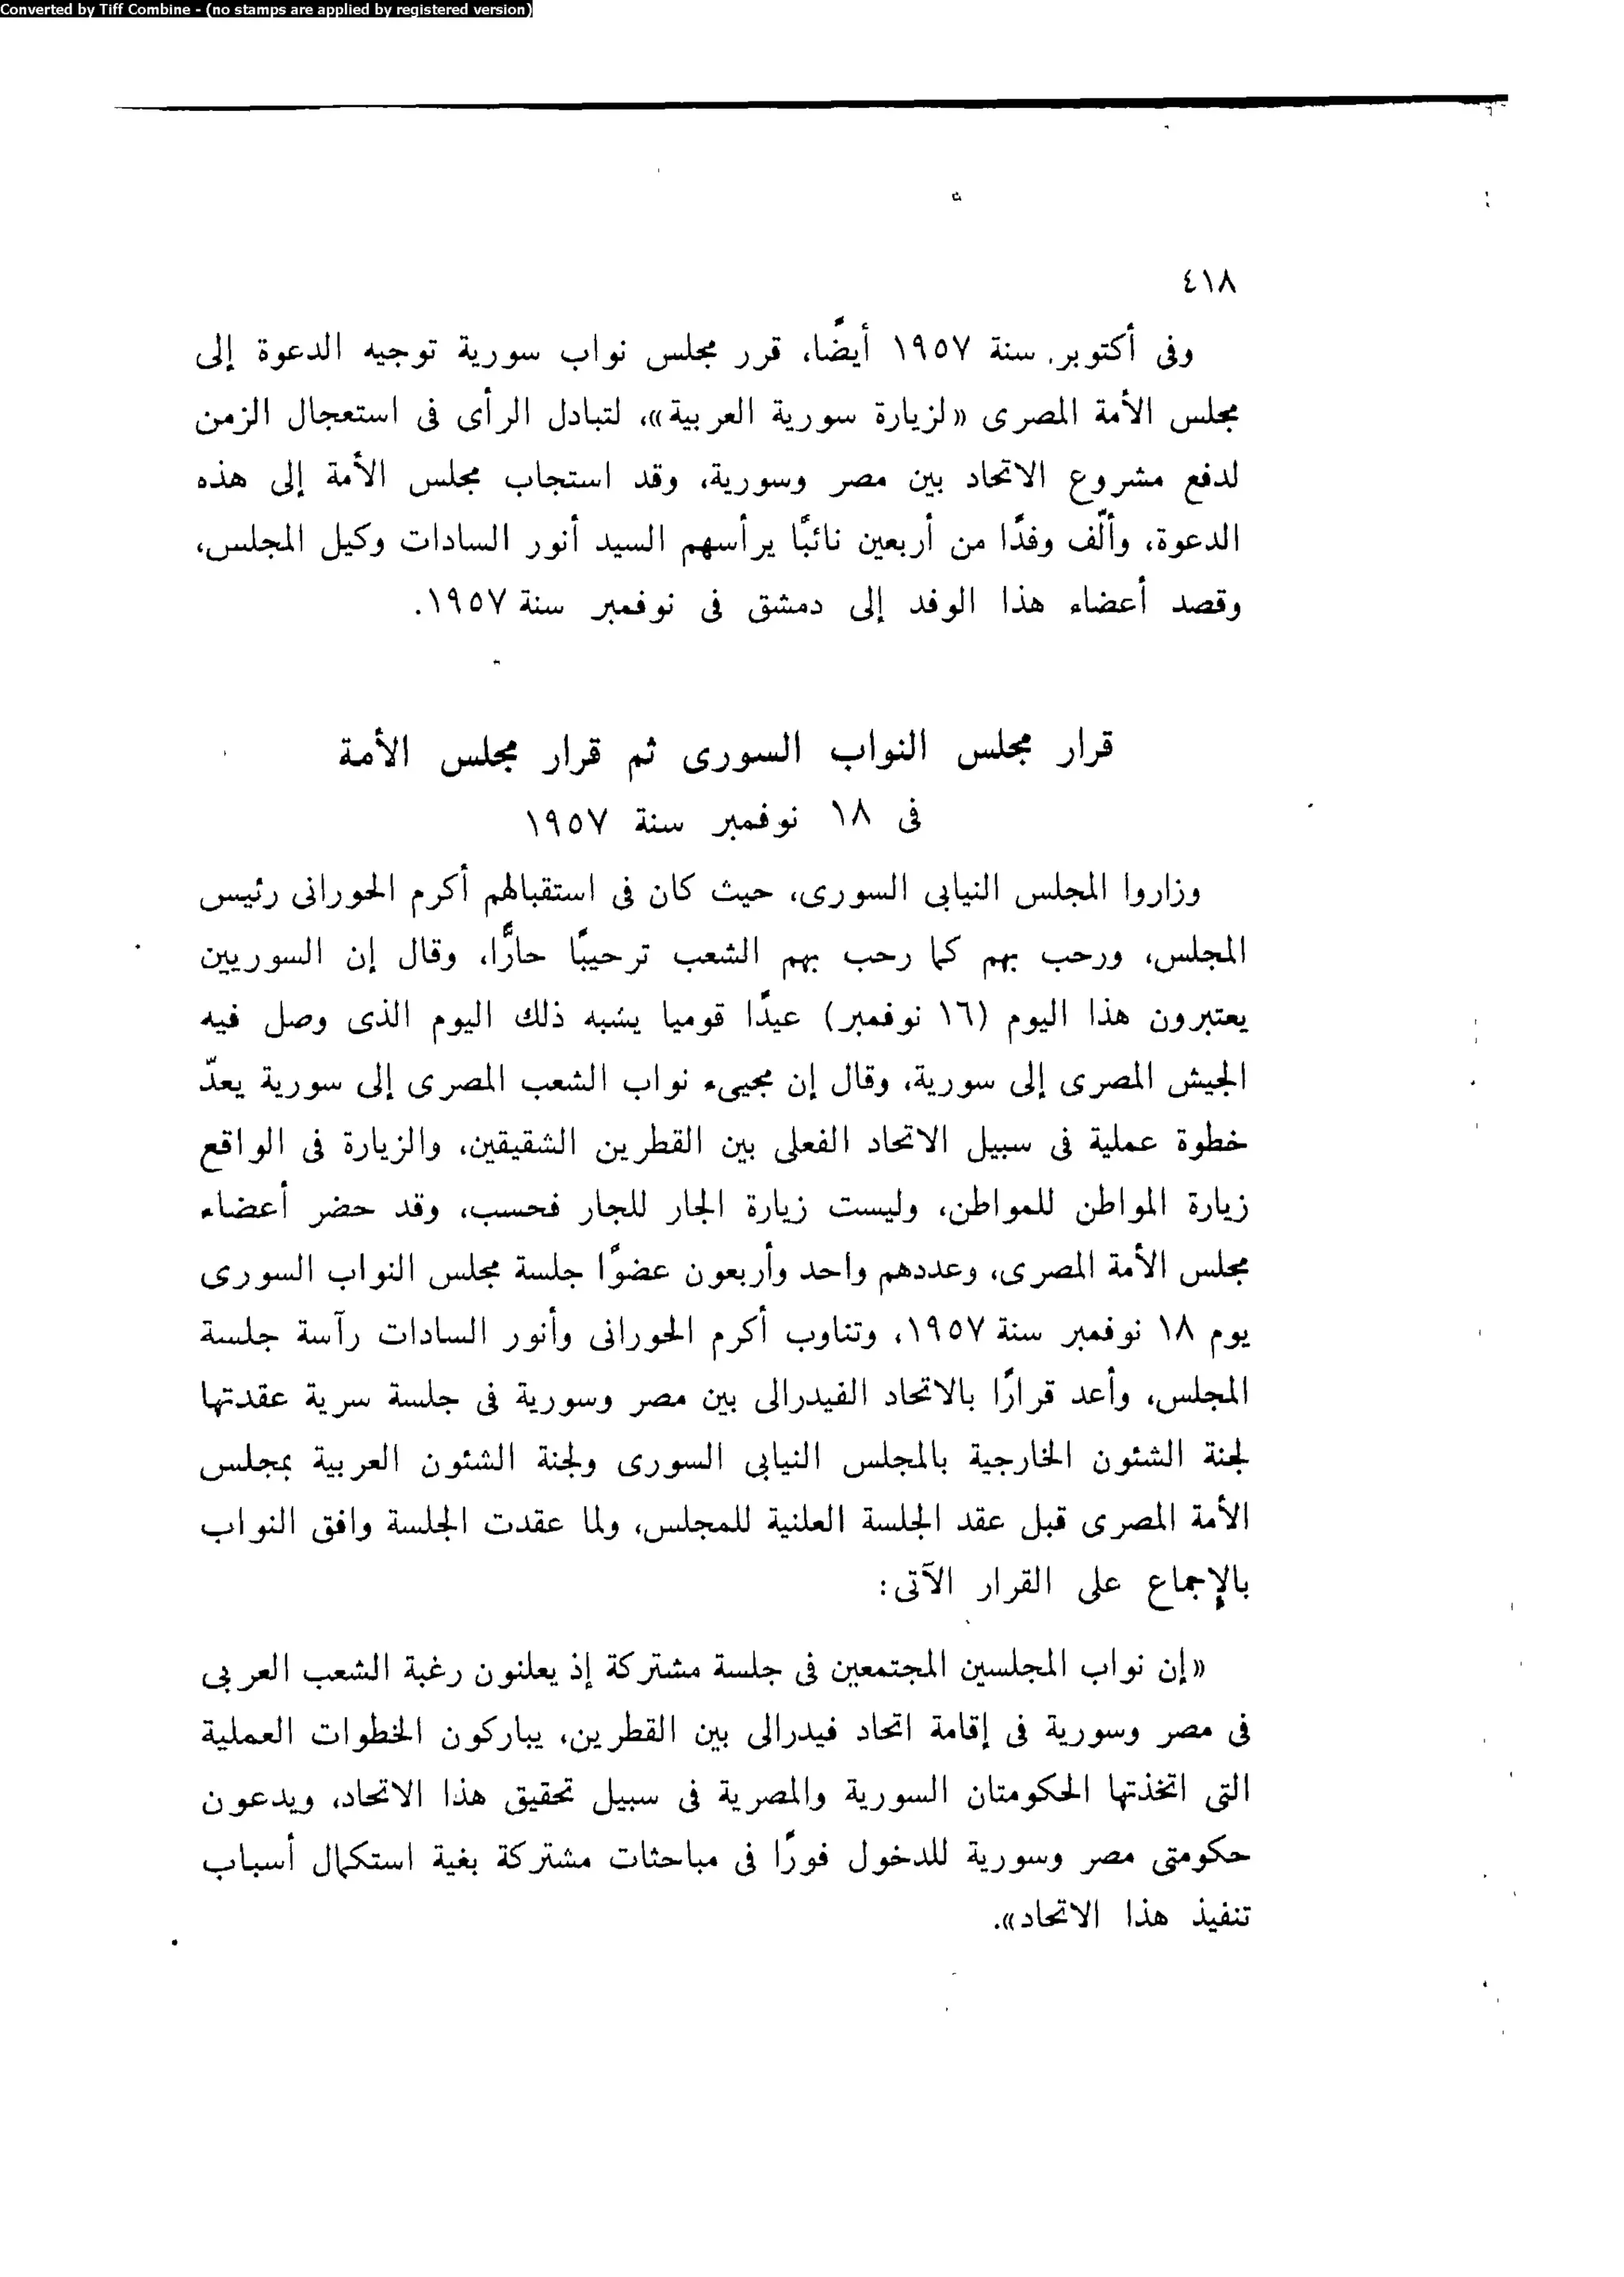 Converted by Tiff Combine - (no stamps are applied by registered version)
٤١٨
وفى أكتوبر. سنة ١٩٥٧ أيضًا، قرر مجلس نواب سورية توجيه الدعوة إلى
مجلس الأمة المصرى «لزيارة سورية العربية»، لتبادل الرأى فى استعجال الزمن
لدفع مشروع الاتحاد بين مصر وسورية، وقد استجاب مجلس الأمة إلى هذه
الدعوة، وألّف وفدًا من أربعين نائبًا يرأسهم السيد أنور السادات وكيل المجلس،
وقصد أعضاء هذا الوفد إلى دمشق فى نوفمبر سنة ١٩٥٧.
قرار مجلس النواب السورى ثم قرار مجلس الأمة
فى ١٨ نوفمبر سنة ١٩٥٧
وزاروا المجلس النيابى السورى، حيث كان فى استقبالهم أكرم الحورانى رئيس
المجلس، ورحب بهم كما رحب بهم الشعب ترحيبًا حارًّا، وقال إن السوريين
يعتبرون هذا اليوم (١٦ نوفمبر) عيدًا قوميا يشبه ذلك اليوم الذى وصل فيه
الجيش المصرى إلى سورية، وقال إن مجيىء نواب الشعب المصرى إلى سورية يعدّ
خطوة عملية فى سبيل الاتحاد الفعلى بين القطرين الشقيقين، والزيارة فى الواقع
زيارة المواطن للمواطن، وليست زيارة الجار للجار فحسب، وقد حضر أعضاء
مجلس الأمة المصرى، وعددهم واحد وأربعون عضوًا جلسة مجلس النواب السورى
يوم ١٨ نوفمبر سنة ١٩٥٧، وتناوب أكرم الحورانى وأنور السادات رآسة جلسة
المجلس، وأعد قرارًا بالاتحاد الفيدرالى بين مصر وسورية فى جلسة سرية عقدتها
لجنة الشئون الخارجية بالمجلس النيابى السورى ولجنة الشئون العربية بمجلس
الأمة المصرى قبل عقد الجلسة العلنية للمجلس، ولما عقدت الجلسة وافق النواب
بالإجماع على القرار الآتى:
«إن نواب المجلسين المجتمعين فى جلسة مشتركة إذ يعلنون رغبة الشعب العربى
فى مصر وسورية فى إقامة اتحاد فيدرالى بين القطرين، يباركون الخطوات العملية
التى اتخذتها الحكومتان السورية والمصرية فى سبيل تحقيق هذا الاتحاد، ويدعون
حكومتى مصر وسورية للدخول فورًا فى مباحثات مشتركة بغية استكمال أسباب
تنفيذ هذا الاتحاد».